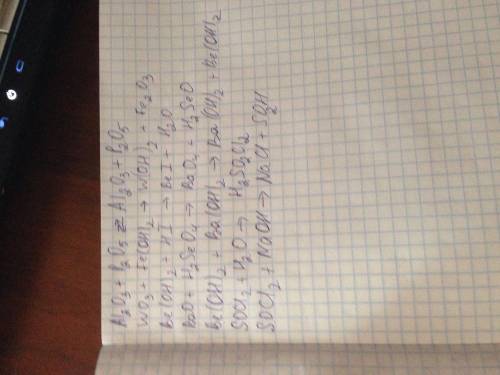 Al₂O₃ + P₂O₅ ⇄ Al₂O₃ + P₂O₅
WO₃ + Fe(OH)₂ → W(OH)₂ + Fe₂O₃
Be(OH)₂ + HI → BeI + H₂O
BaO + H₂SeO₄ → BaO₄ + H₂SeO
Be(OH)₂ + Ba(OH)₂ → Ba(OH)₂ + Be(OH)₂
SOCl₂ + H₂O → H₂SO₃Cl₂
SOCl₂ + NaOH → NaCl + SOH